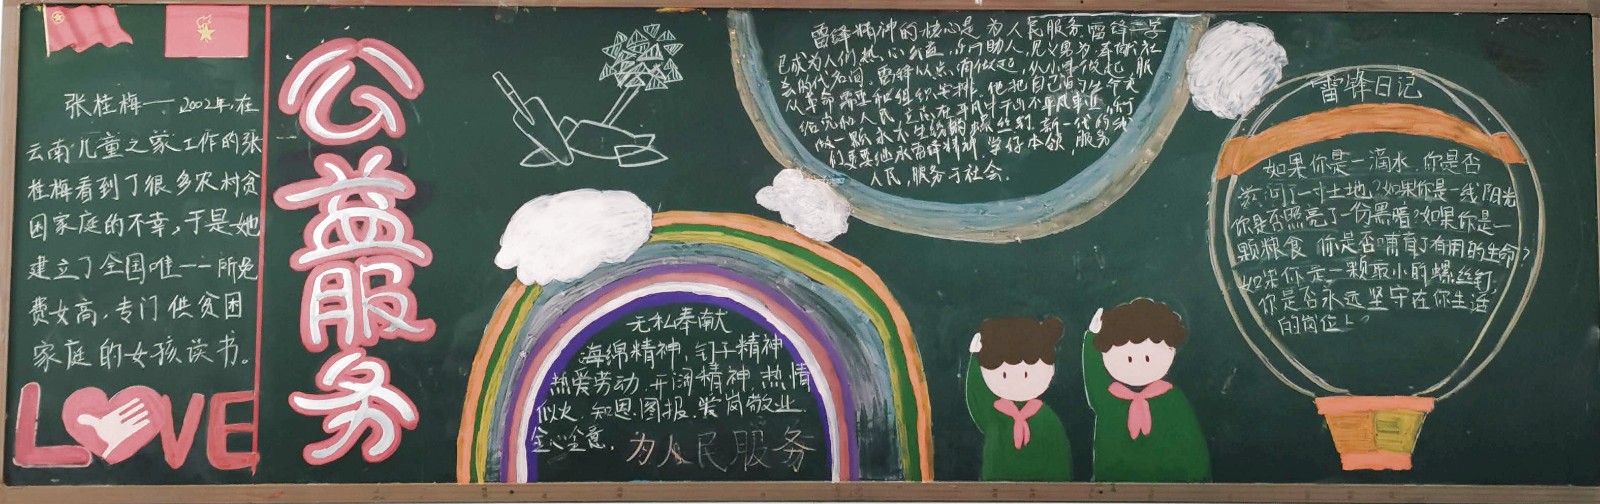 张桂梅——2002年,在
云南儿童之家工作的张
桂梅看到了很多农村贫
困家庭的不幸,于是她
建立了全国唯一一所免
费女高,专门供贫困
家庭的女孩读书。
LOVE
公益服务
无私奉献
海绵精神,钉子精神
热爱劳动,开阔精神,热情
似火,知恩图报,爱岗敬业,
全心全意,为人民服务
雷锋精神的核心是为人民服务,雷锋三字
已成为人们热心公益,乐于助人,见义勇为
会的代名词,雷锋从点滴做起,从小事做起,服
从革命需要和组织安排,他把自己的
给党和人民,立志在平凡中干出不平凡事业,甘
做一颗永不生锈的螺丝钉,新一代的我
们更要继承雷锋精神,学好本领,服务
人民,服务于社会.
雷锋日记
如果你是一滴水,你是否
滋润了一寸土地?如果你是一线阳光
你是否照亮了一份黑暗?如果你是一
颗粮食,你是否哺育了有用的生命?
如果你是一颗最小的螺丝钉,
你是否永远坚守在你生活
的岗位上?